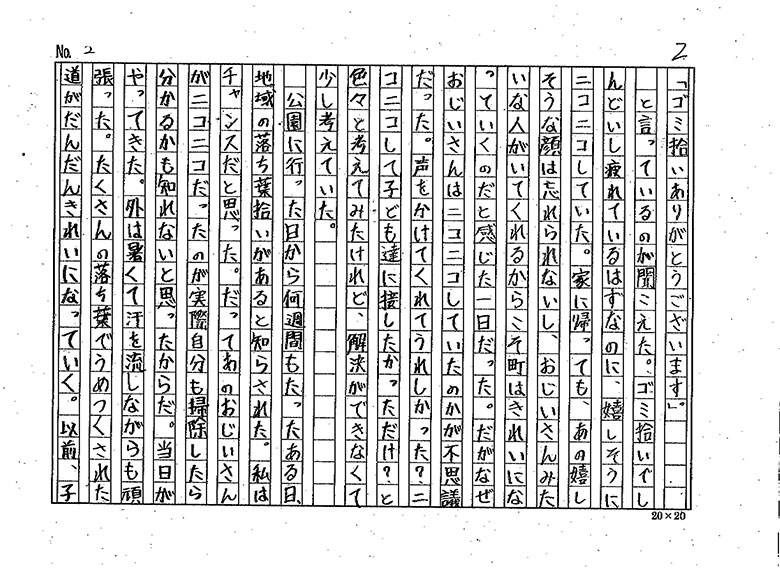 No. 2
2
「ゴミ拾いありがとうございます」。
と言っているのが聞こえた。ゴミ拾いでし
んどいし疲れているはずなのに、嬉しそうに
ニコニコしていた。家に帰っても、あの嬉し
そうな顔は忘れられないし、おじいさんみた
いな人がいてくれるからこそ町はきれいにな
っていくのだと感じた一日だった。だがなぜ
おじいさんはニコニコしていたのかが不思議
だった。声をかけてくれてうれしかった?ニ
コニコして子ども達に接したかっただけ?と
色々と考えてみたけれど、解決ができなくて
少し考えていた。
公園に行った日から何週間もたったある日、
地域の落ち葉拾いがあると知らされた。私は
チャンスだと思った。だってあのおじいさん
がニコニコだったのが実際自分も掃除したら
分かるかも知れないと思ったからだ。当日が
やってきた。外は暑くて汗を流しながらも頑
張った。たくさんの落ち葉でうめつくされた
道がだんだんきれいになっていく。以前、子
20×20